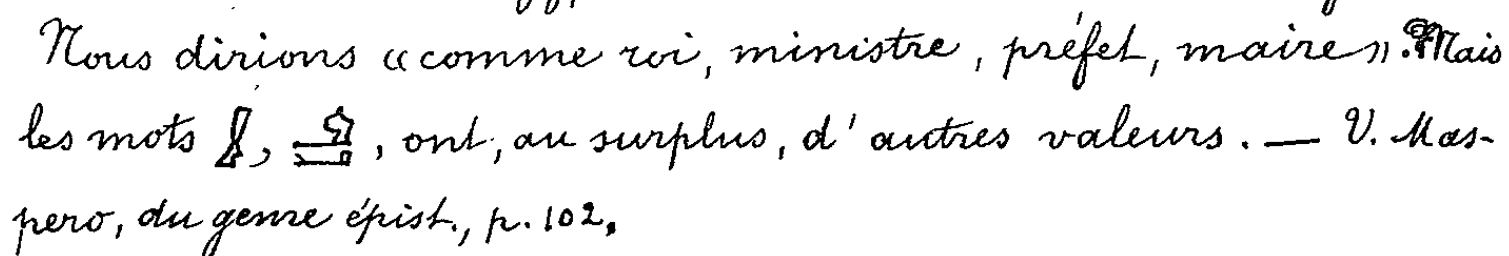 Nous dirions « comme roi, ministre, préfet, maire ». Mais
les mots , , ont, au surplus, d'autres valeurs. — V. Mas-
pero, du genre épist., p. 102.